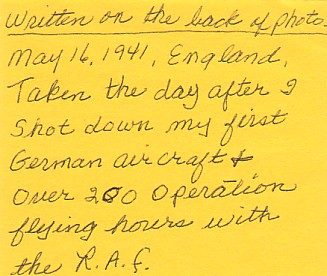 Written on the back of photo.
May 16, 1941, England,
Taken the day after I
Shot down my first
German aircraft &
Over 200 Operation
flying hours with
the R.A.F.